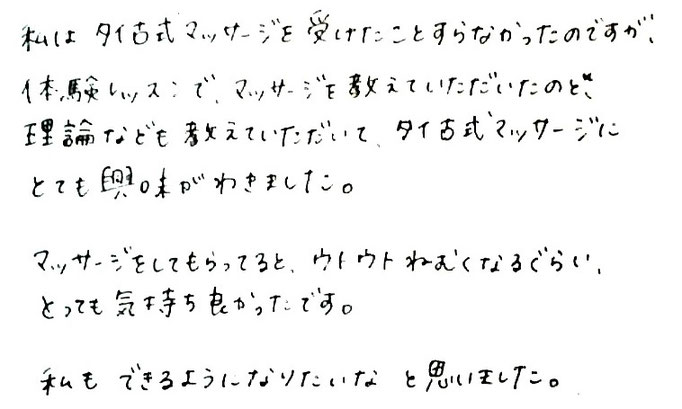 私は タイ古式マッサージを 受けたことすらなかったのですが、
体験レッスンで、マッサージを教えていただいたのと、
理論なども教えていただいて、タイ古式マッサージに
とても興味がわきました。
マッサージをしてもらってると、ウトウトねむくなるぐらい、
とっても気持ち良かったです。
私も できるようになりたいな と思いました。